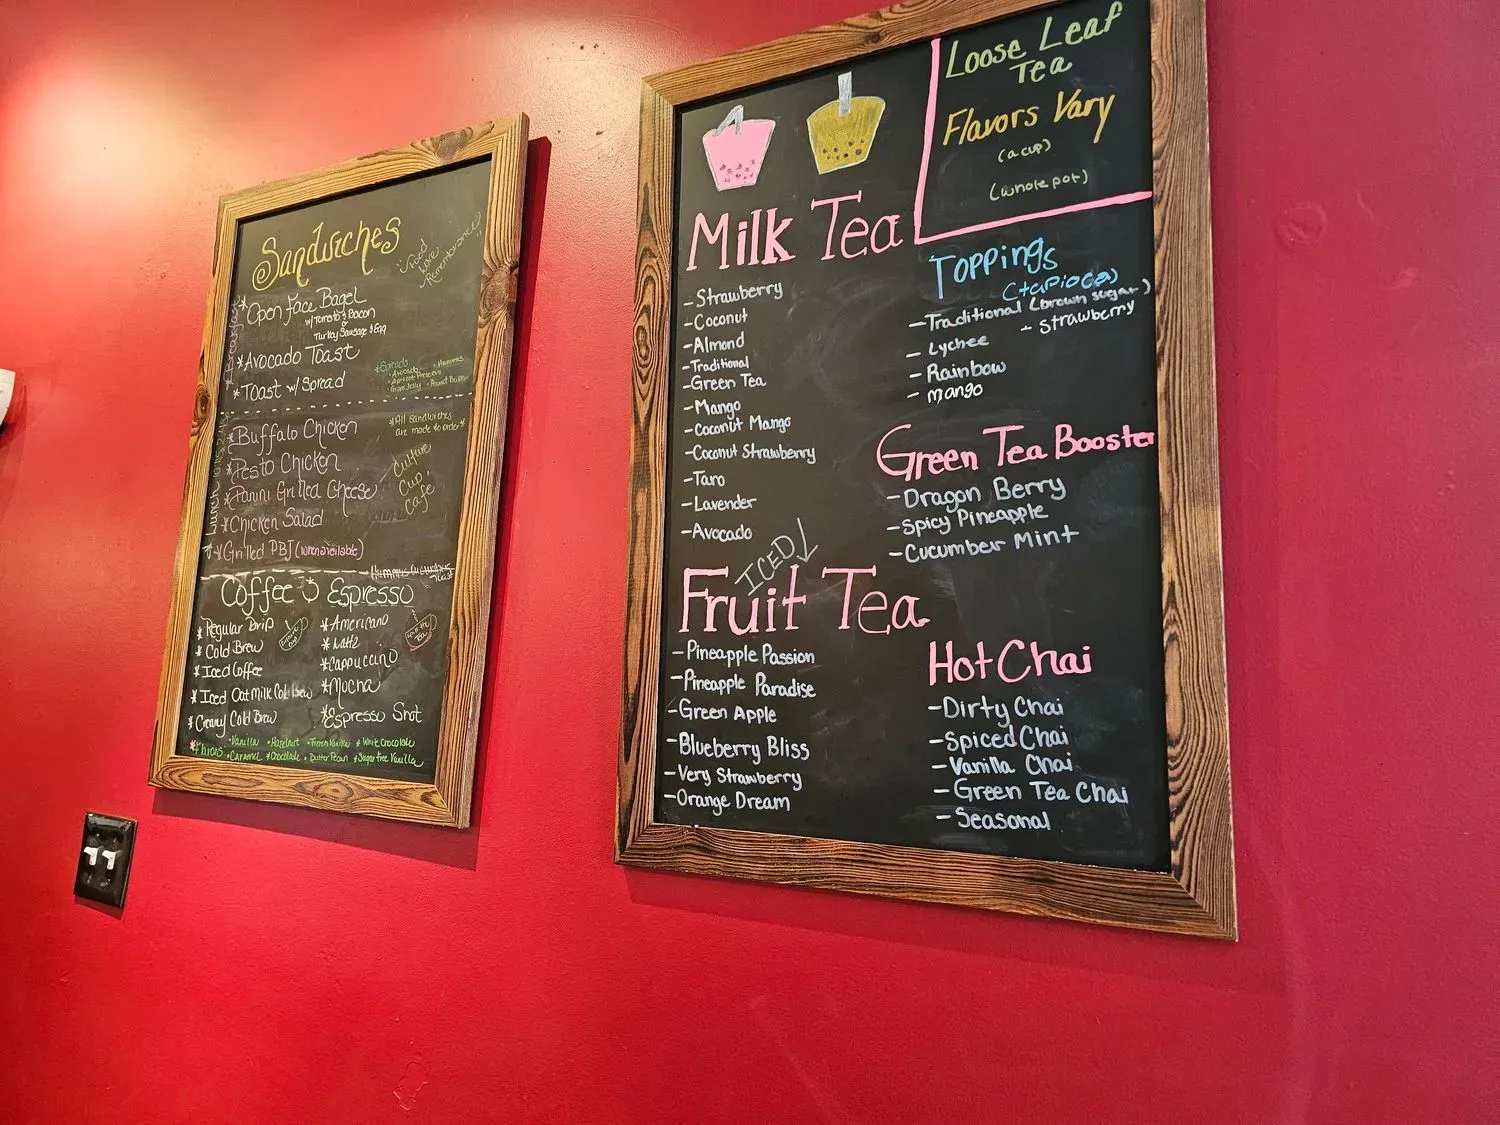 Sandwiches
"Food
Worth
Remembering"
Breakfast
*Open Face Bagel
w/Tomato & Bacon
or
Turkey Sausage & Egg
*Avocado Toast
*Toast w/ Spread
*Spreads
• Avocado • Hummus
• Apricot Preserves
Grape Jelly • Peanut Butter
*All Sandwiches
are made to order*
*Buffalo Chicken
*Pesto Chicken
*Panini Grilled Cheese
*Chicken Salad
*Grilled PBJ (when available)
Culture
Cup
Cafe
Coffee & Espresso
*Regular Drip
*Cold Brew
*Iced Coffee
*Iced Oat Milk Cold Brew
*Creamy Cold Brew
*Americano
*Latte
*Cappuccino
*Mocha
*Espresso Shot
*Flavors: • Vanilla • Hazelnut • French Vanilla * White Chocolate
• Caramel * Chocolate • Butter Pecan * Sugar free Vanilla
Loose Leaf
Tea
Flavors Vary
(a cup)
(whole pot)
Milk Tea
- Strawberry
- Coconut
- Almond
- Traditional
- Green Tea
- Mango
- Coconut Mango
- Coconut Strawberry
- Taro
- Lavender
- Avocado
Toppings
(tapioca)
- Traditional (brown sugar)
- Strawberry
- Lychee
- Rainbow
- mango
Green Tea Booster
- Dragon Berry
- Spicy Pineapple
- Cucumber Mint
ICED
Fruit Tea
- Pineapple Passion
- Pineapple Paradise
- Green Apple
- Blueberry Bliss
- Very Strawberry
- Orange Dream
Hot Chai
- Dirty Chai
- Spiced Chai
- Vanilla Chai
- Green Tea Chai
- Seasonal